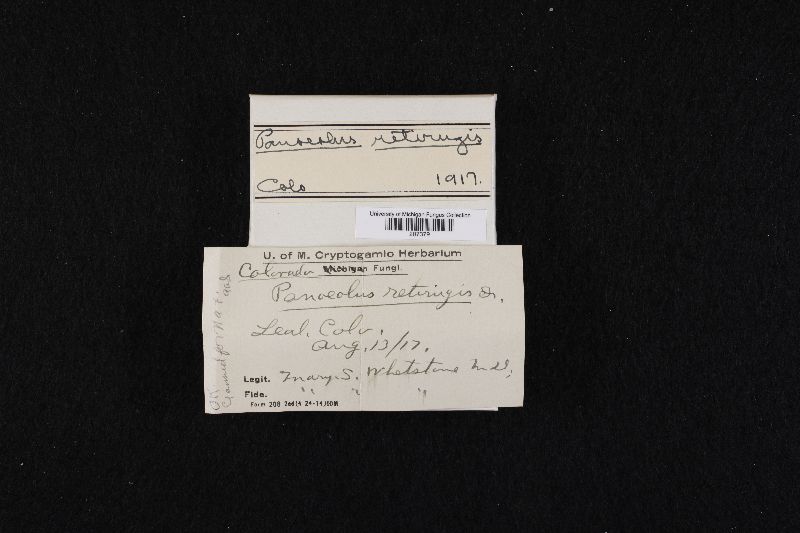 Panaeolus retirugis
Colo 1917.
University of Michigan Fungus Collection
U. of M. Cryptogamic Herbarium
Colorado Michigan Fungi.
Panaeolus retirugis Fr.
Leal, Colo.
Aug. 13/17.
Legit. Mary S. Whetstone M.D.
Fide. " " "
Form 208